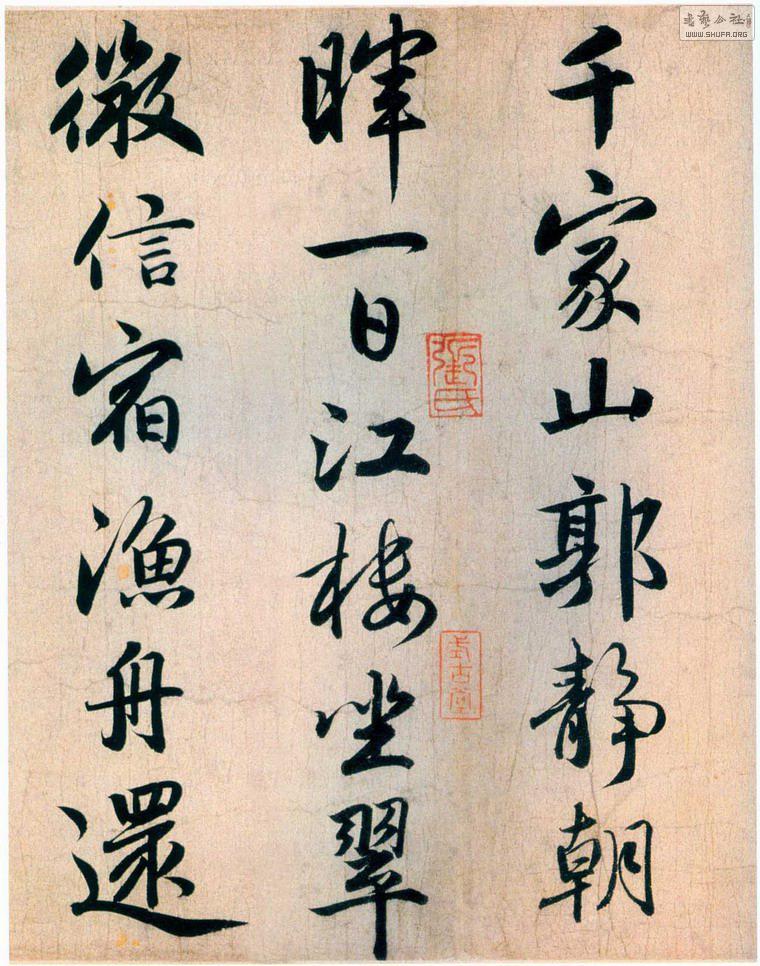 千家山郭静朝
暉一日江楼坐翠
微信宿漁舟還
式古堂
WWW.SHUFA.ORG